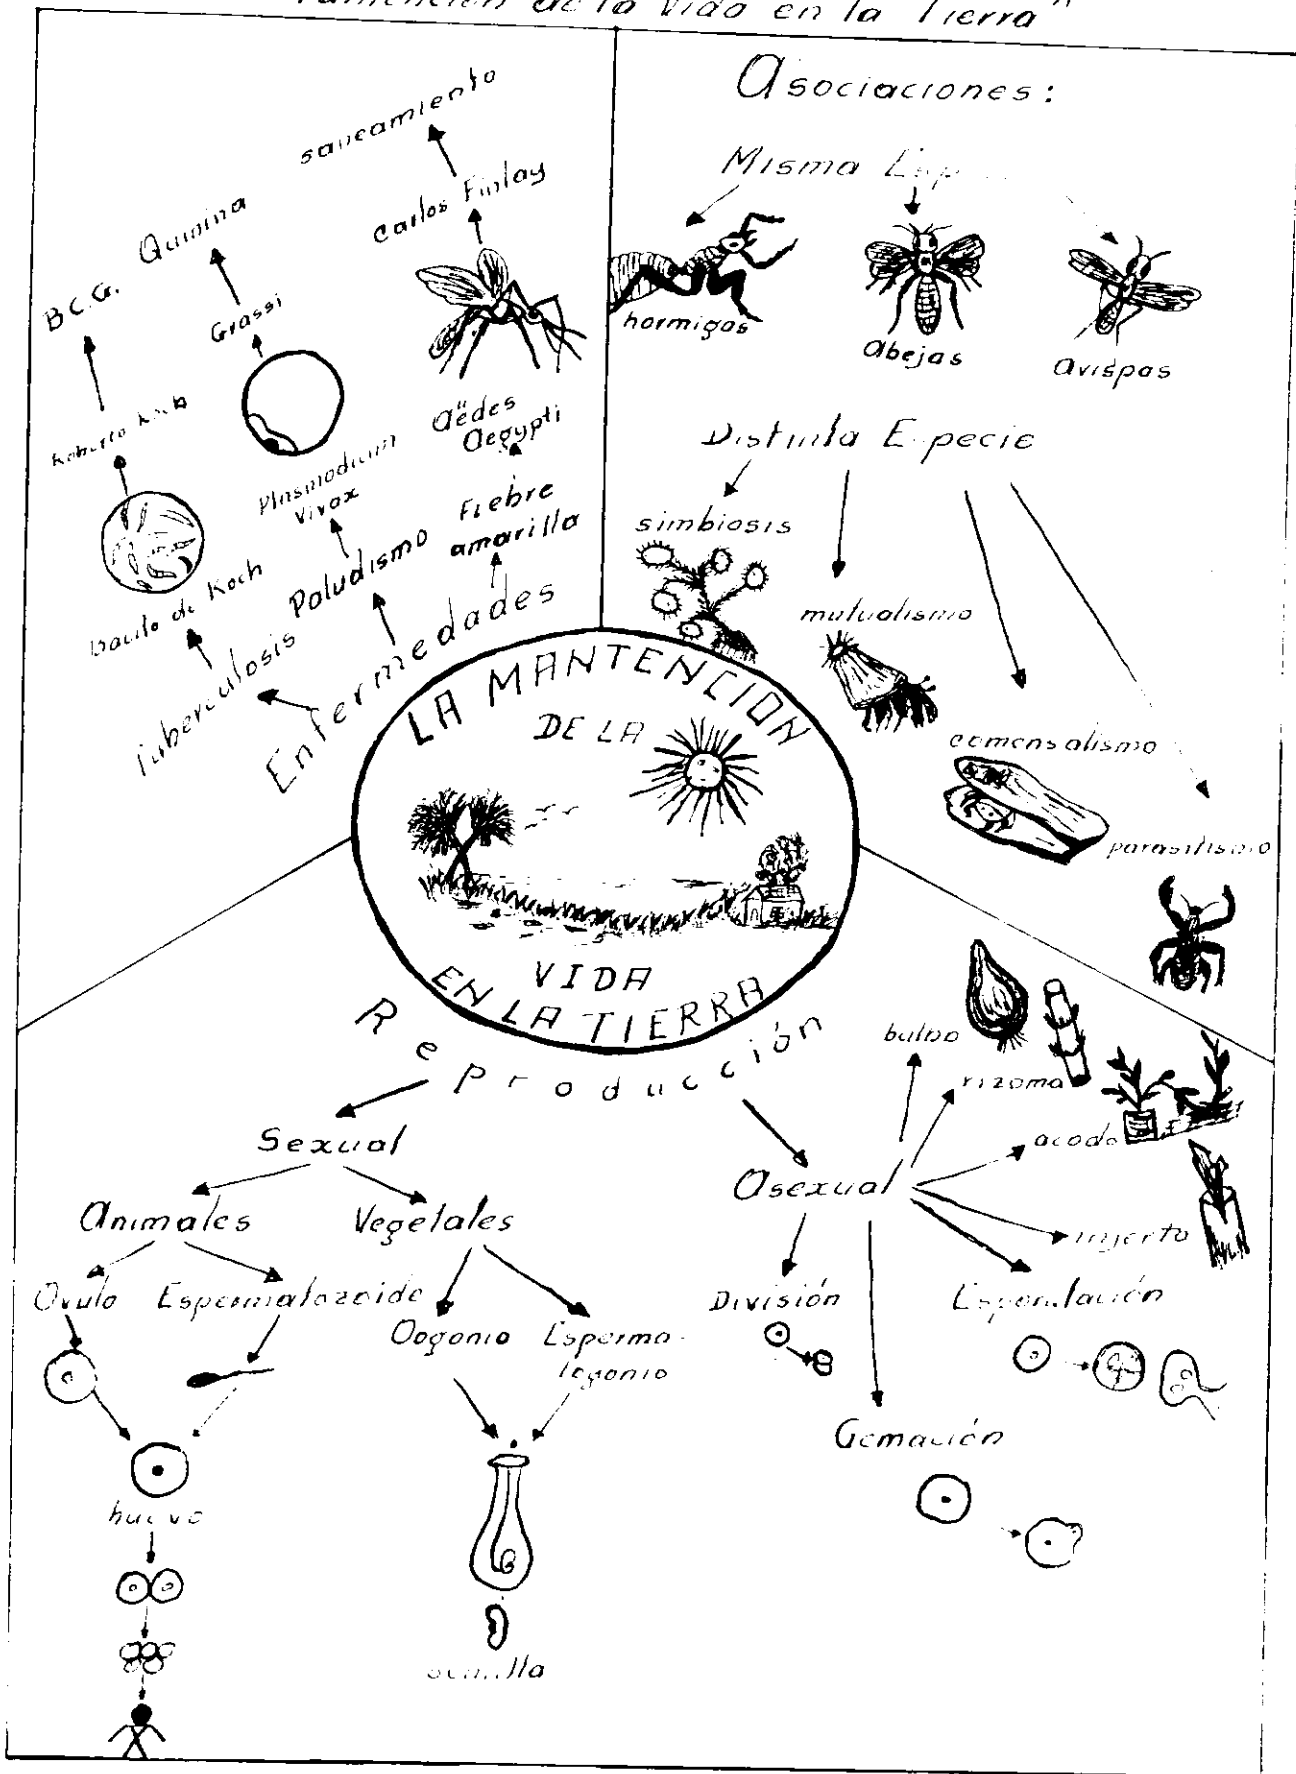 de la Vida en la Tierra"
saneamiento
Carlos Finlay
Quinina
Grassi
B.C.G.
Roberto Koch
Aëdes
Aegypti
Plasmodium
Vivax
Fiebre
amarilla
Paludismo
bacilo de Koch
Tuberculosis
Enfermedades
Asociaciones:
Misma
hormigas
Abejas
Avispas
Distinta Especie
simbiosis
mutualismo
comensalismo
parasitismo
LA MANTENCION
DE LA
VIDA
EN LA TIERRA
Reproducción
Sexual
Animales
Vegetales
Ovulo
Espermatozoide
Oogonio
Espermo-
togonio
huevo
semilla
Asexual
bulbo
rizoma
acodo
injerto
División
Esporulación
Gemación